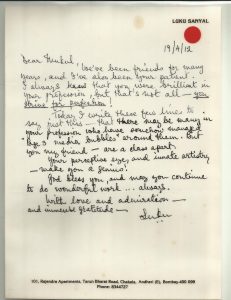 LUKU SANYAL
19/4/12
Dear
We've been friends for many
years, and I've also been your patient.
I always knew that you were brilliant in
your profession, but that's not all — you
strive for perfection!
Today I write these few lines to
say just this — that there may be many in
your profession who have somehow managed
media bubbles around them, but
you my friend — are a class apart.
Your perceptive eye, and innate artistry,
— make you a genius!
God bless you, and may you continue
to do wonderful work ... always.
With love and admiration —
and immense gratitude —
Luku
101, Rajendra Apartments, Tarun Bharat Road, Chakala, Andheri (E), Bombay-400 099
Phone: 8344727